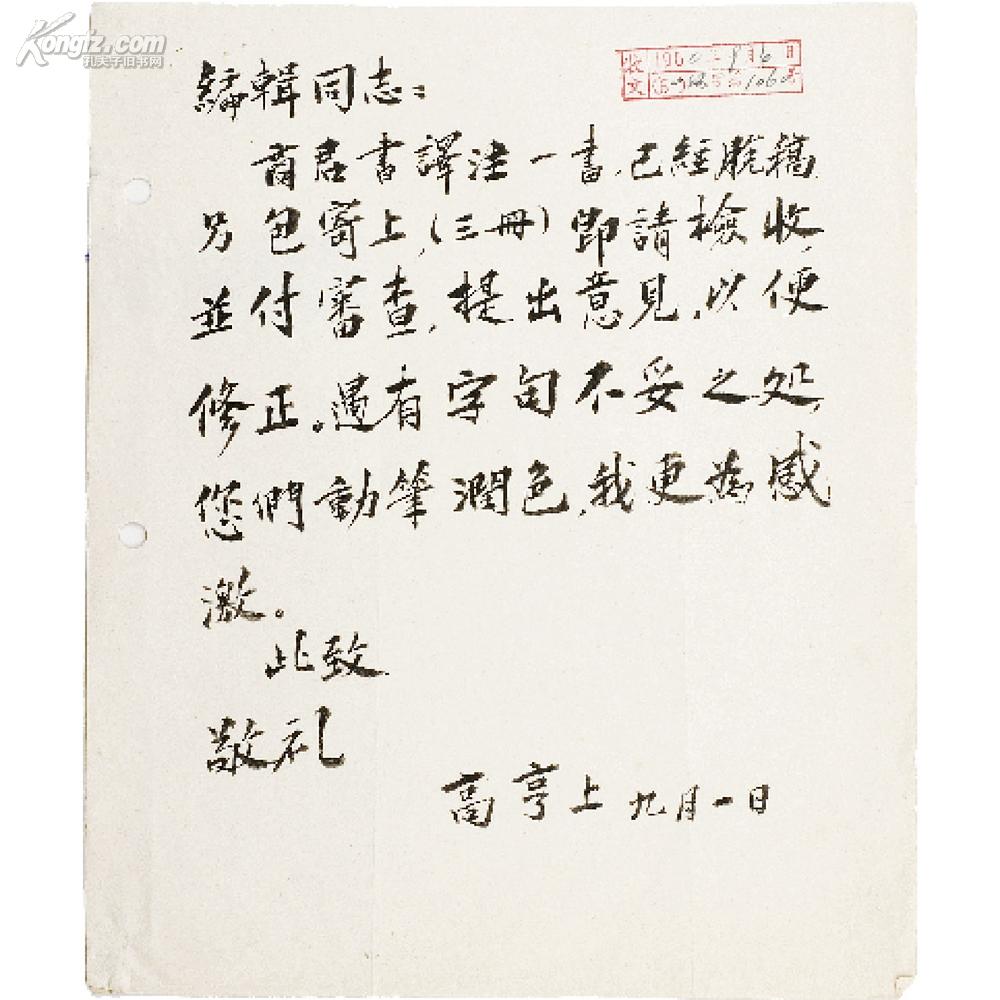 Kongfz.com
孔夫子旧书网
收文 1960年9月6日
字第1060号
編輯同志：
商君書譯注一書，已經脫稿，
另包寄上，（三冊）即請檢收，
並付審查，提出意見，以便
修正。遇有字句不妥之处，
您們動筆潤色，我更為感
激。
此致
敬礼
高亨上 九月一日